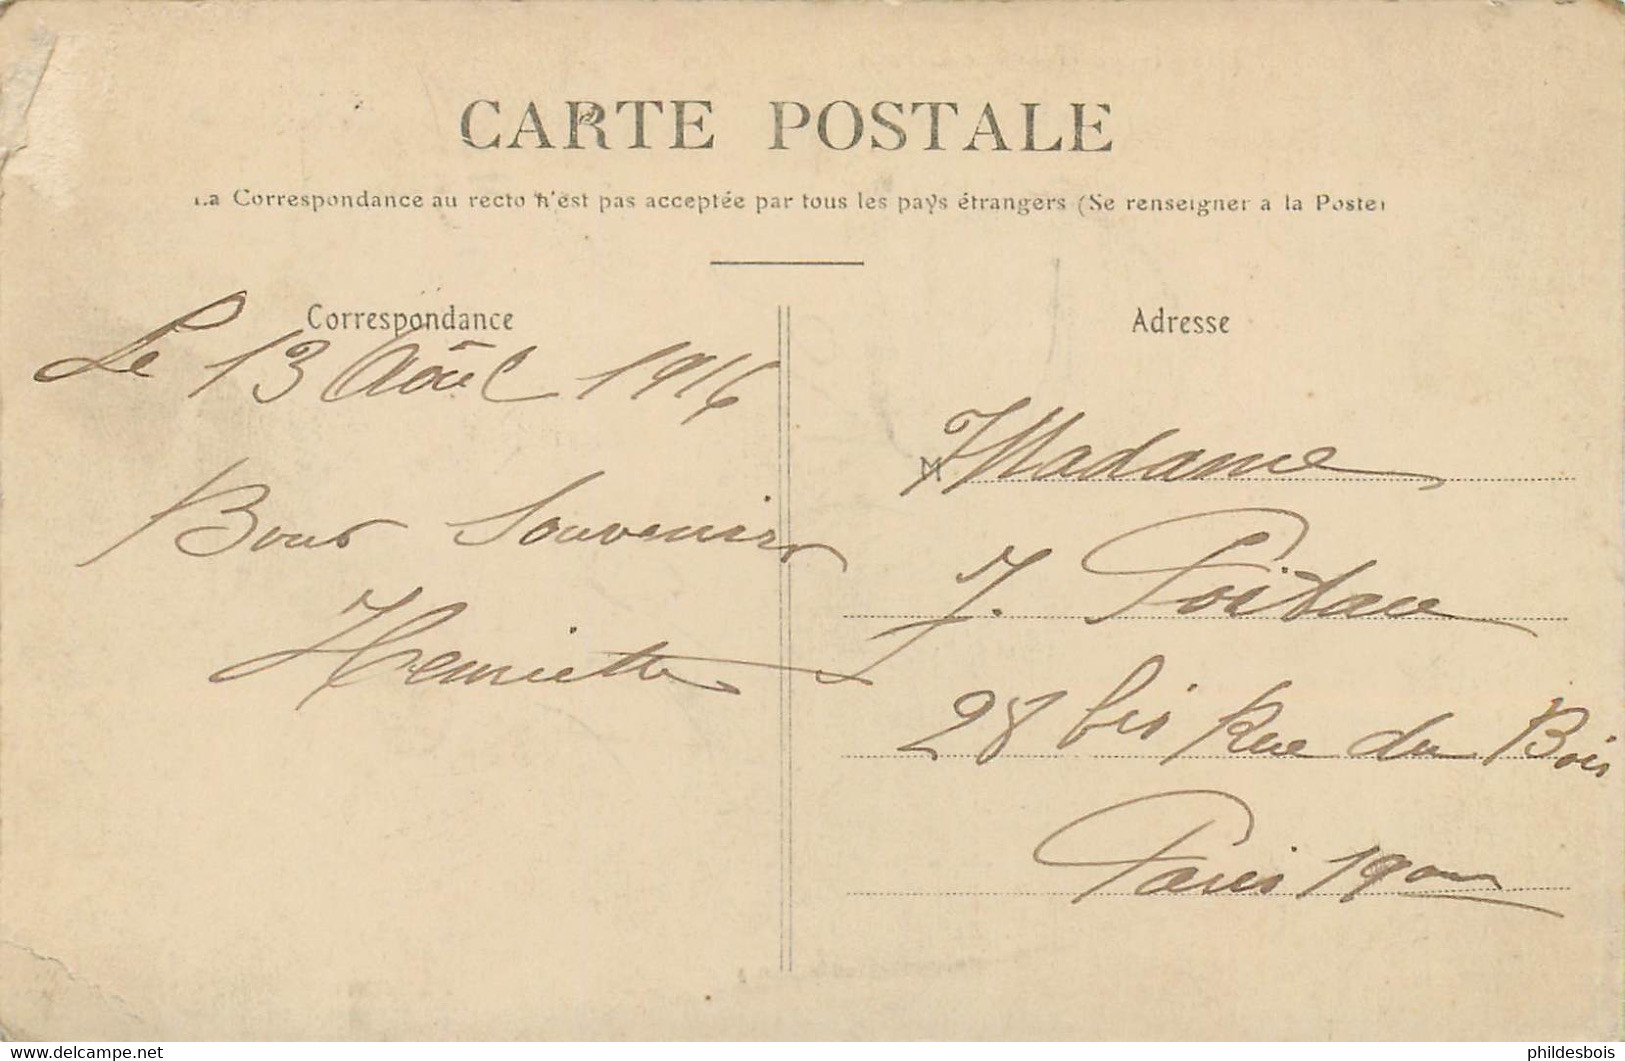 CARTE POSTALE
La Correspondance au recto n'est pas acceptée par tous les pays étrangers (Se renseigner a la Poste)
Correspondance
Le 13 Août 1916
Bons Souvenirs
Henriette
Adresse
Madame
J. Poitau
28 bis Rue du Bois
Paris 19
https://www.delcampe.net
phildesbois